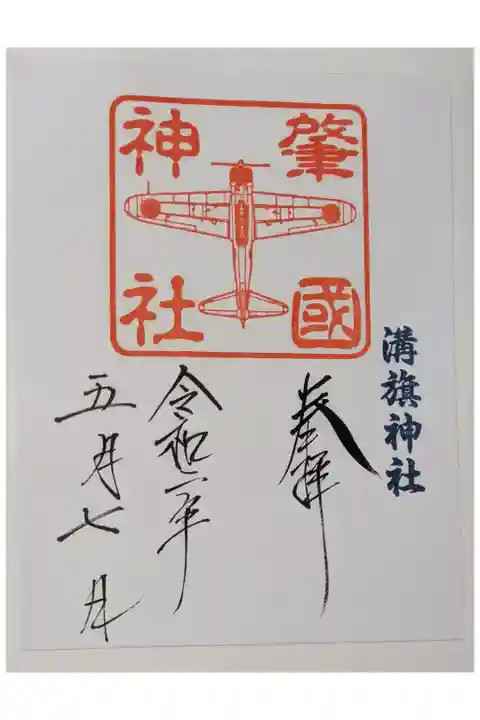 肇國
神社
溝旗神社
奉拝
令和 年
五月七日